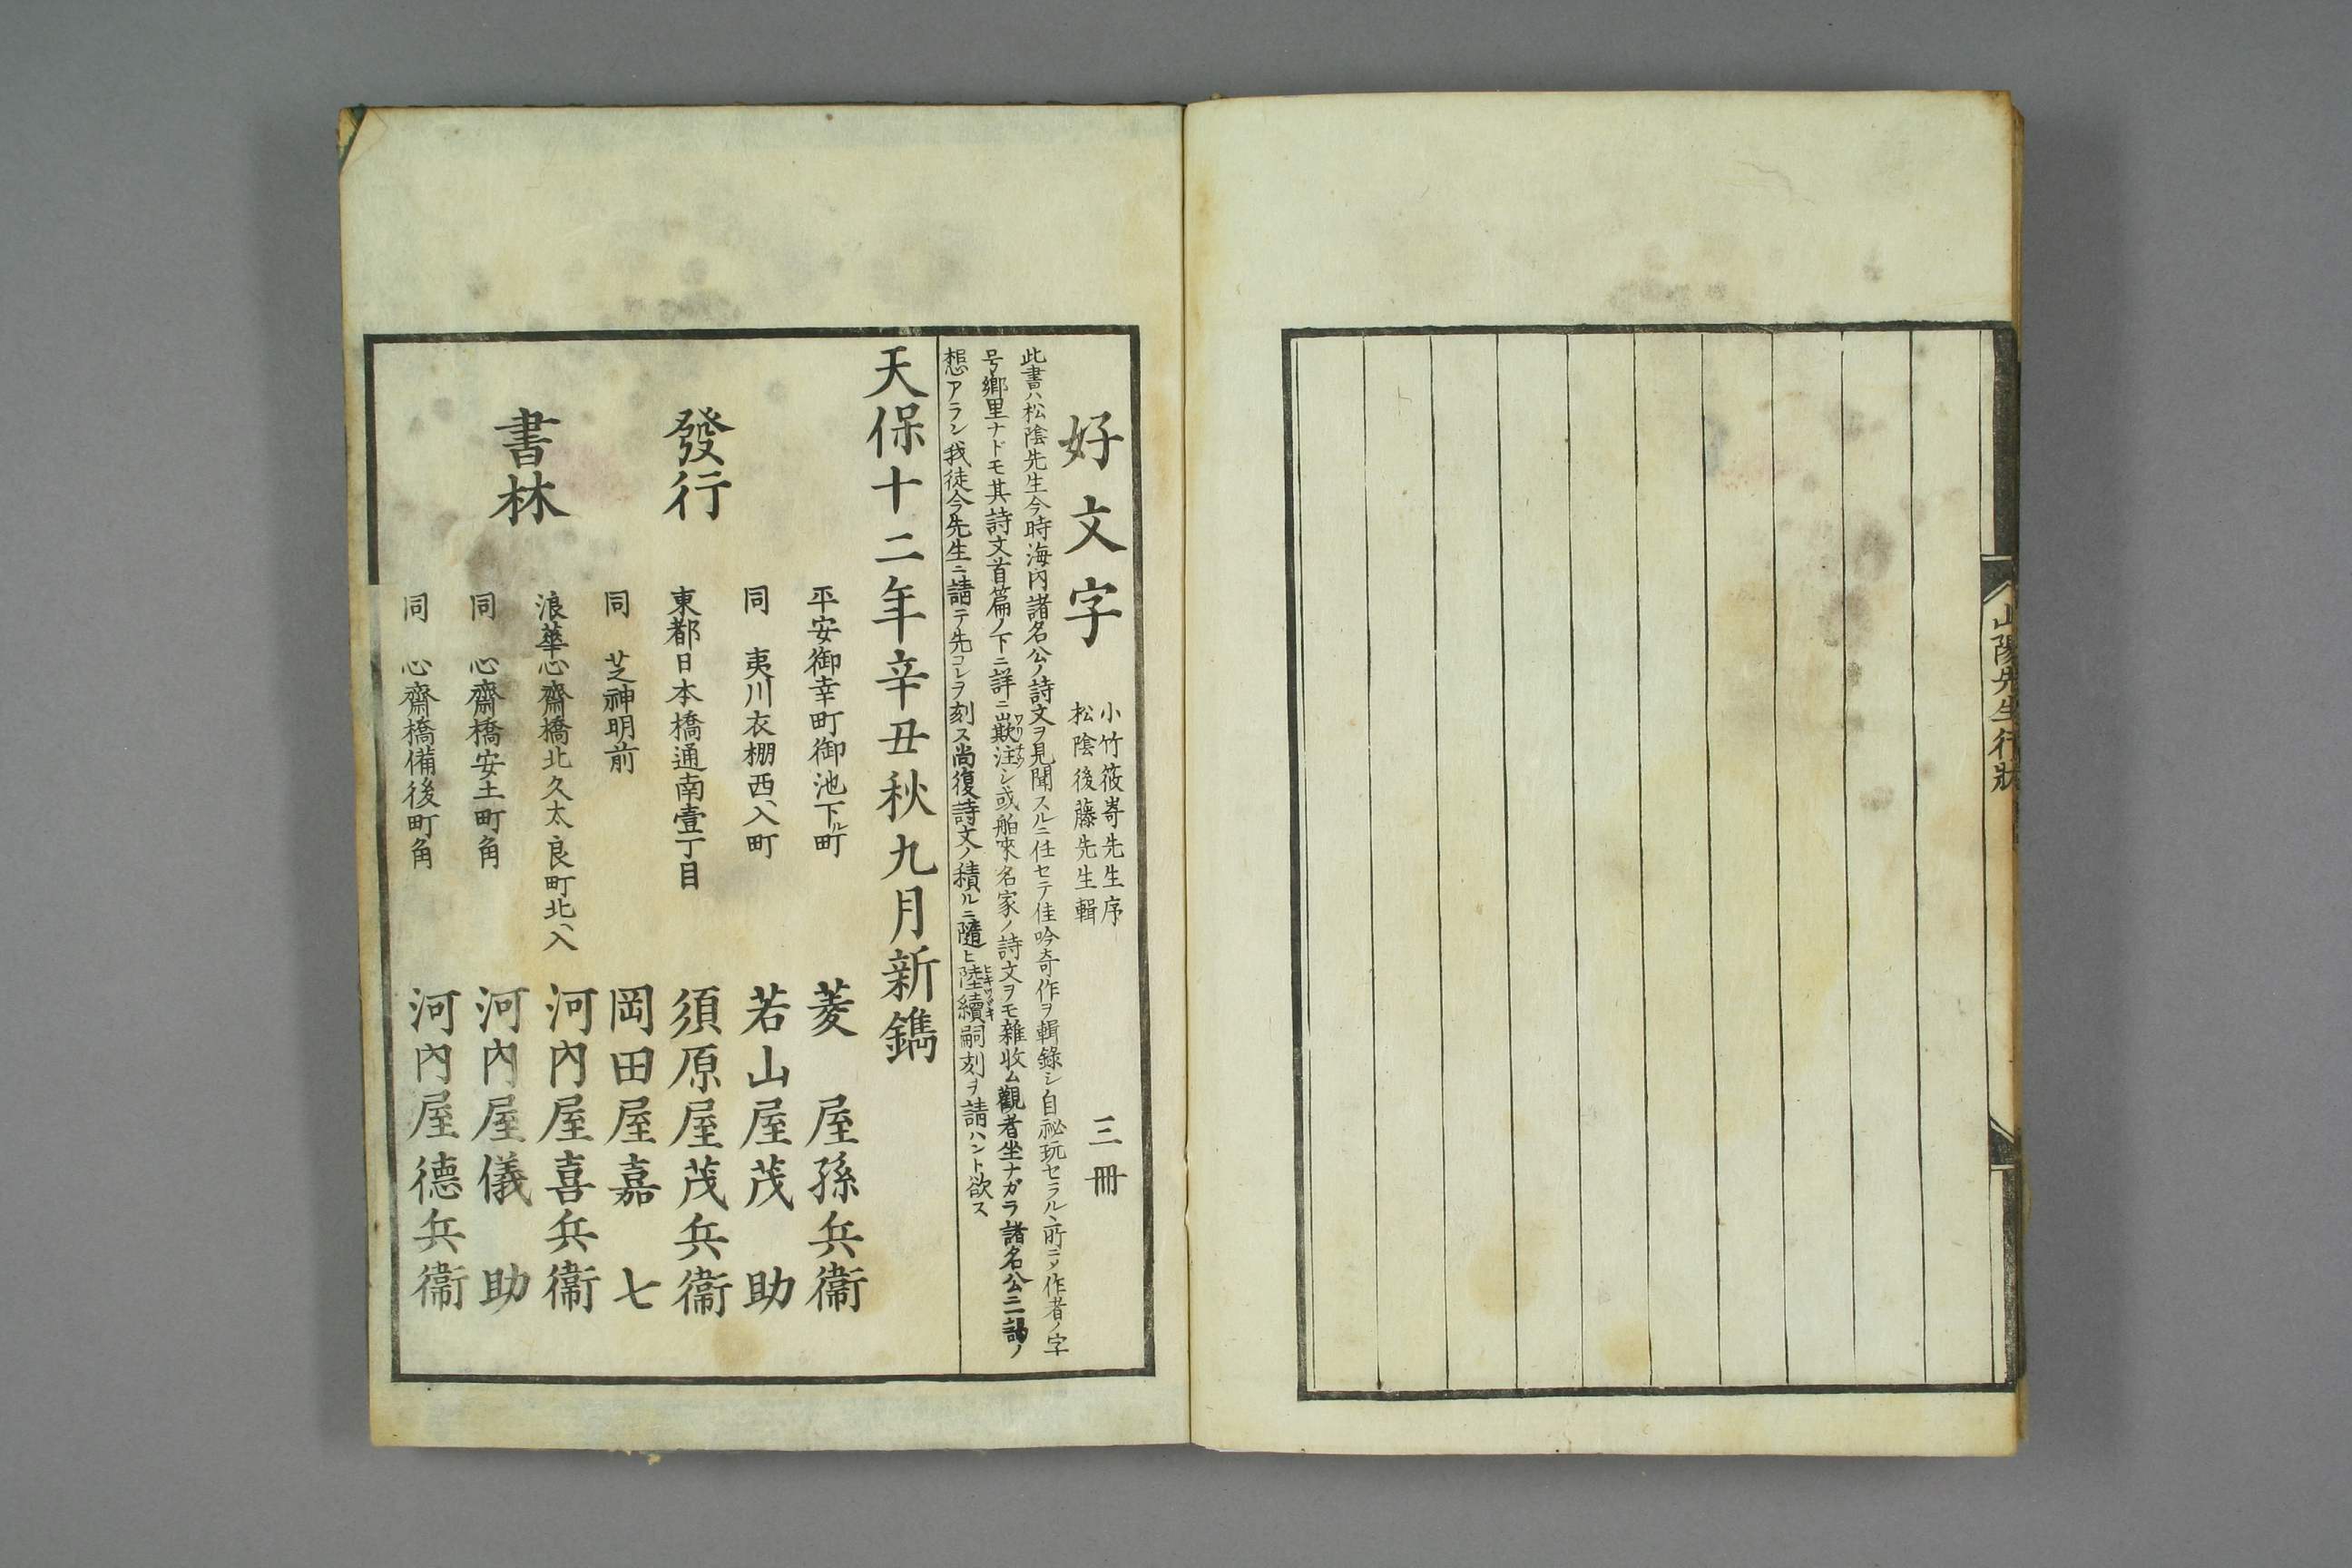 山陽先生行狀
好文字
小竹筱嵜先生序
松陰後藤先生輯
三冊
此書ハ松陰先生今時海內諸名公ノ詩文ヲ見聞スルニ任セテ佳吟奇作ヲ輯錄シ自祕玩セラルヽ所ニヲ作者ノ字
号鄉里ナドモ其詩文首篇ノ下ニ詳ニ歎注シ或舶來名家ノ詩文ヲモ雜收ム觀者坐ナガラ諸名公ニ謁ノ
想アラン我徒今先生ニ請テ先コレヲ刻ス尚復詩文ノ積ルニ隨ヒ陸續嗣刻ヲ請ハント欲ス
天保十二年辛丑秋九月新鐫
發行
書林
平安御幸町御池下ル町 菱屋孫兵衞
同 夷川衣棚西入町 若山屋茂助
東都日本橋通南壹丁目 須原屋茂兵衞
同 芝神明前 岡田屋嘉七
浪華心齋橋北久太良町北入 河內屋喜兵衞
同 心齋橋安土町角 河內屋儀助
同 心齋橋備後町角 河內屋德兵衞